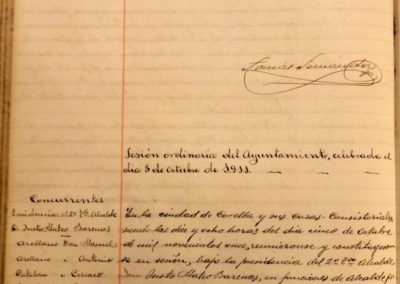 Tomás Fernández
Sesión ordinaria del Ayuntamiento, celebrada el
día 5 de Octubre de 1911.
Concurrentes
Presidencia: el 2º Tte. Alcalde
D. Justo Mateo Barenas
Arellano Don Manuel
Arellano " Antonio
Catalán " Ciriaco
En la ciudad de Corella y sus casas Consistoriales,
siendo las diez y ocho horas del día cinco de Octubre
de mil novecientos once, reuniéronse y constituyeron
se en sesión, bajo la presidencia del 2º Tte. Alcalde
Don Justo Mateo Barenas, en funciones de Alcalde